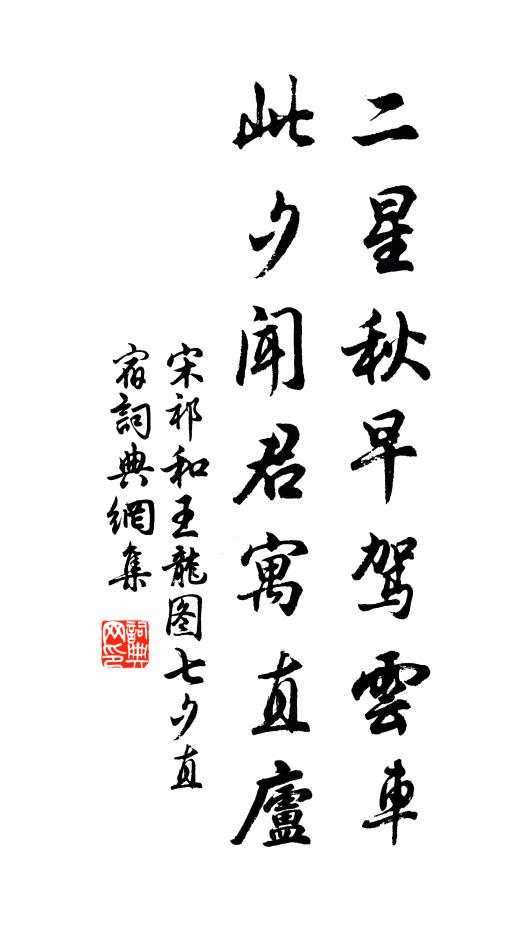 二星秋早駕雲車
此夕聞君寓直廬
宋祁和王龍图七夕直
宿詞典網集
詞典
网印